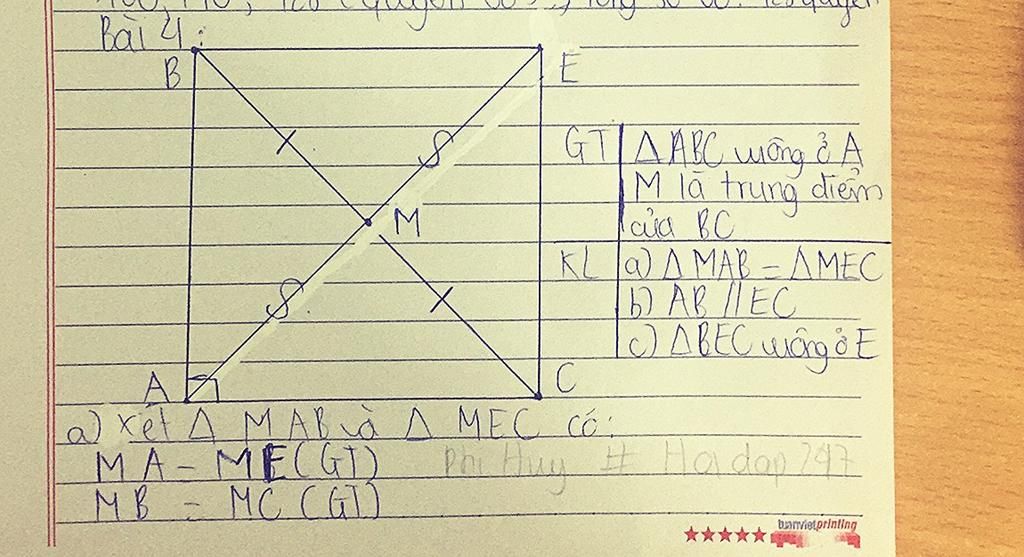 Bài 4:
B
E
GT
ΔABC vuông ở A
M là trung điểm
của BC
M
KL
a) ΔMAB = ΔMEC
b) AB // EC
c) ΔBEC vuông ở E
A
C
a) Xét Δ MAB và Δ MEC có:
MA = ME (GT)
Phi Huy # Hoidap247
MB = MC (GT)
tuanvietprinting